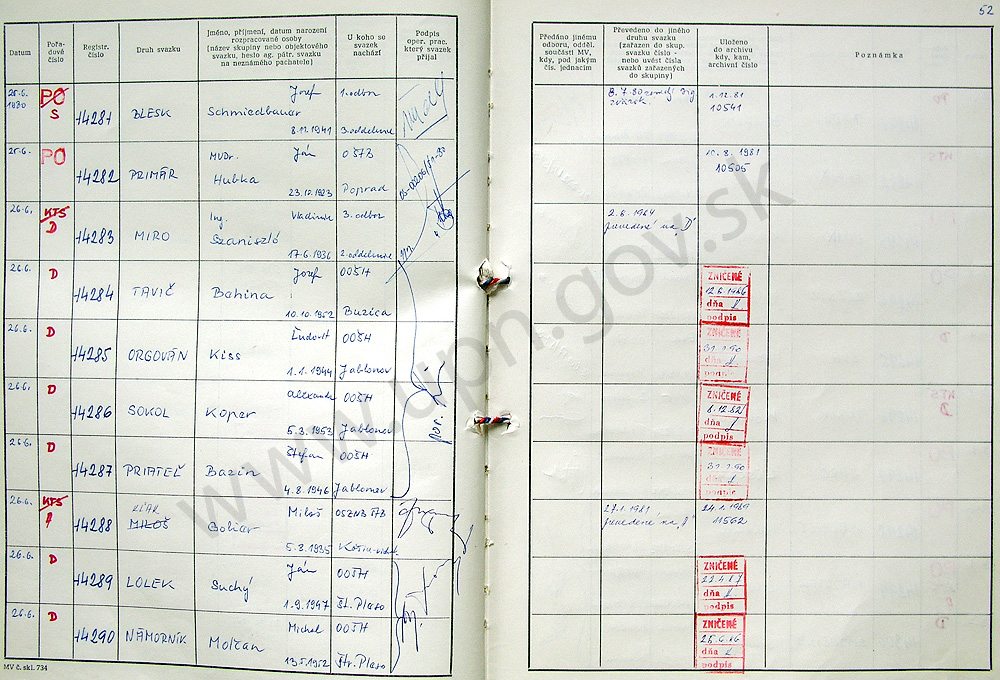 52
Datum
Pořa-
dové
číslo
Registr.
číslo
Druh svazku
Jméno, příjmení, datum narození
rozpracované osoby
(název skupiny nebo objektového
svazku, heslo ag. pátr. svazku
na neznámého pachatele)
U koho se
svazek
nachází
Podpis
oper. prac.
který svazek
přijal
Předáno jinému
odboru, odděl.
součásti MV,
kdy, pod jakým
čís. jednacím
Převedeno do jiného
druhu svazku
(zařazen do skup.
svazku číslo -
nebo uvést čísla
svazků zařazených
do skupiny)
Uloženo
do archivu
kdy, kam,
archivní číslo
Poznámka
25.6.
1980
PO
S
14281
BLESK
Jozef
Schmiedbauer
8.12.1941
1. odbor
3. oddelenie
1.12.81
10541
25.6.
PO
14282
PRIMÁR
MVDr. Ján
Hubka
23.10.1923
Poprad
10.8.1981
10505
26.6.
KTS
D
14283
MIRO
Ing. Vladimír
Szaniszló
17.6.1936
3. odbor
2. oddelenie
prevedené na "D"
26.6.
D
14284
TAVIČ
Jozef
Bahina
10.10.1952
OOŠH
Buzica
ZNIČENÉ
dňa
podpis
26.6.
D
14285
ORGOVÁN
Ľudovít
Kiss
1.1.1944
OOŠH
Jablonov
ZNIČENÉ
31.1.90
dňa
podpis
26.6.
D
14286
SOKOL
Alexander
Koper
5.3.1953
OOŠH
Jablonov
por.
ZNIČENÉ
8.12.82
dňa
podpis
26.6.
D
14287
PRIATEĽ
Štefan
Bazin
4.8.1946
OOŠH
Jablonov
ZNIČENÉ
31.1.90
dňa
podpis
26.6.
KTS
14288
MILOŠ
Miloš
Boliar
5.3.1935
27.1.1981
prevedené na "A"
24.1.1989
11562
26.6.
D
14289
LOLEK
Ján
Suchý
1.9.1947
OOŠH
Št. Pleso
ZNIČENÉ
22.4.87
dňa
podpis
26.6.
D
14290
NÁMORNÍK
Michal
Molčan
13.5.1952
OOŠH
Štr. Pleso
ZNIČENÉ
25.6.86
dňa
podpis
MV č. skl. 734
www.upn.gov.sk